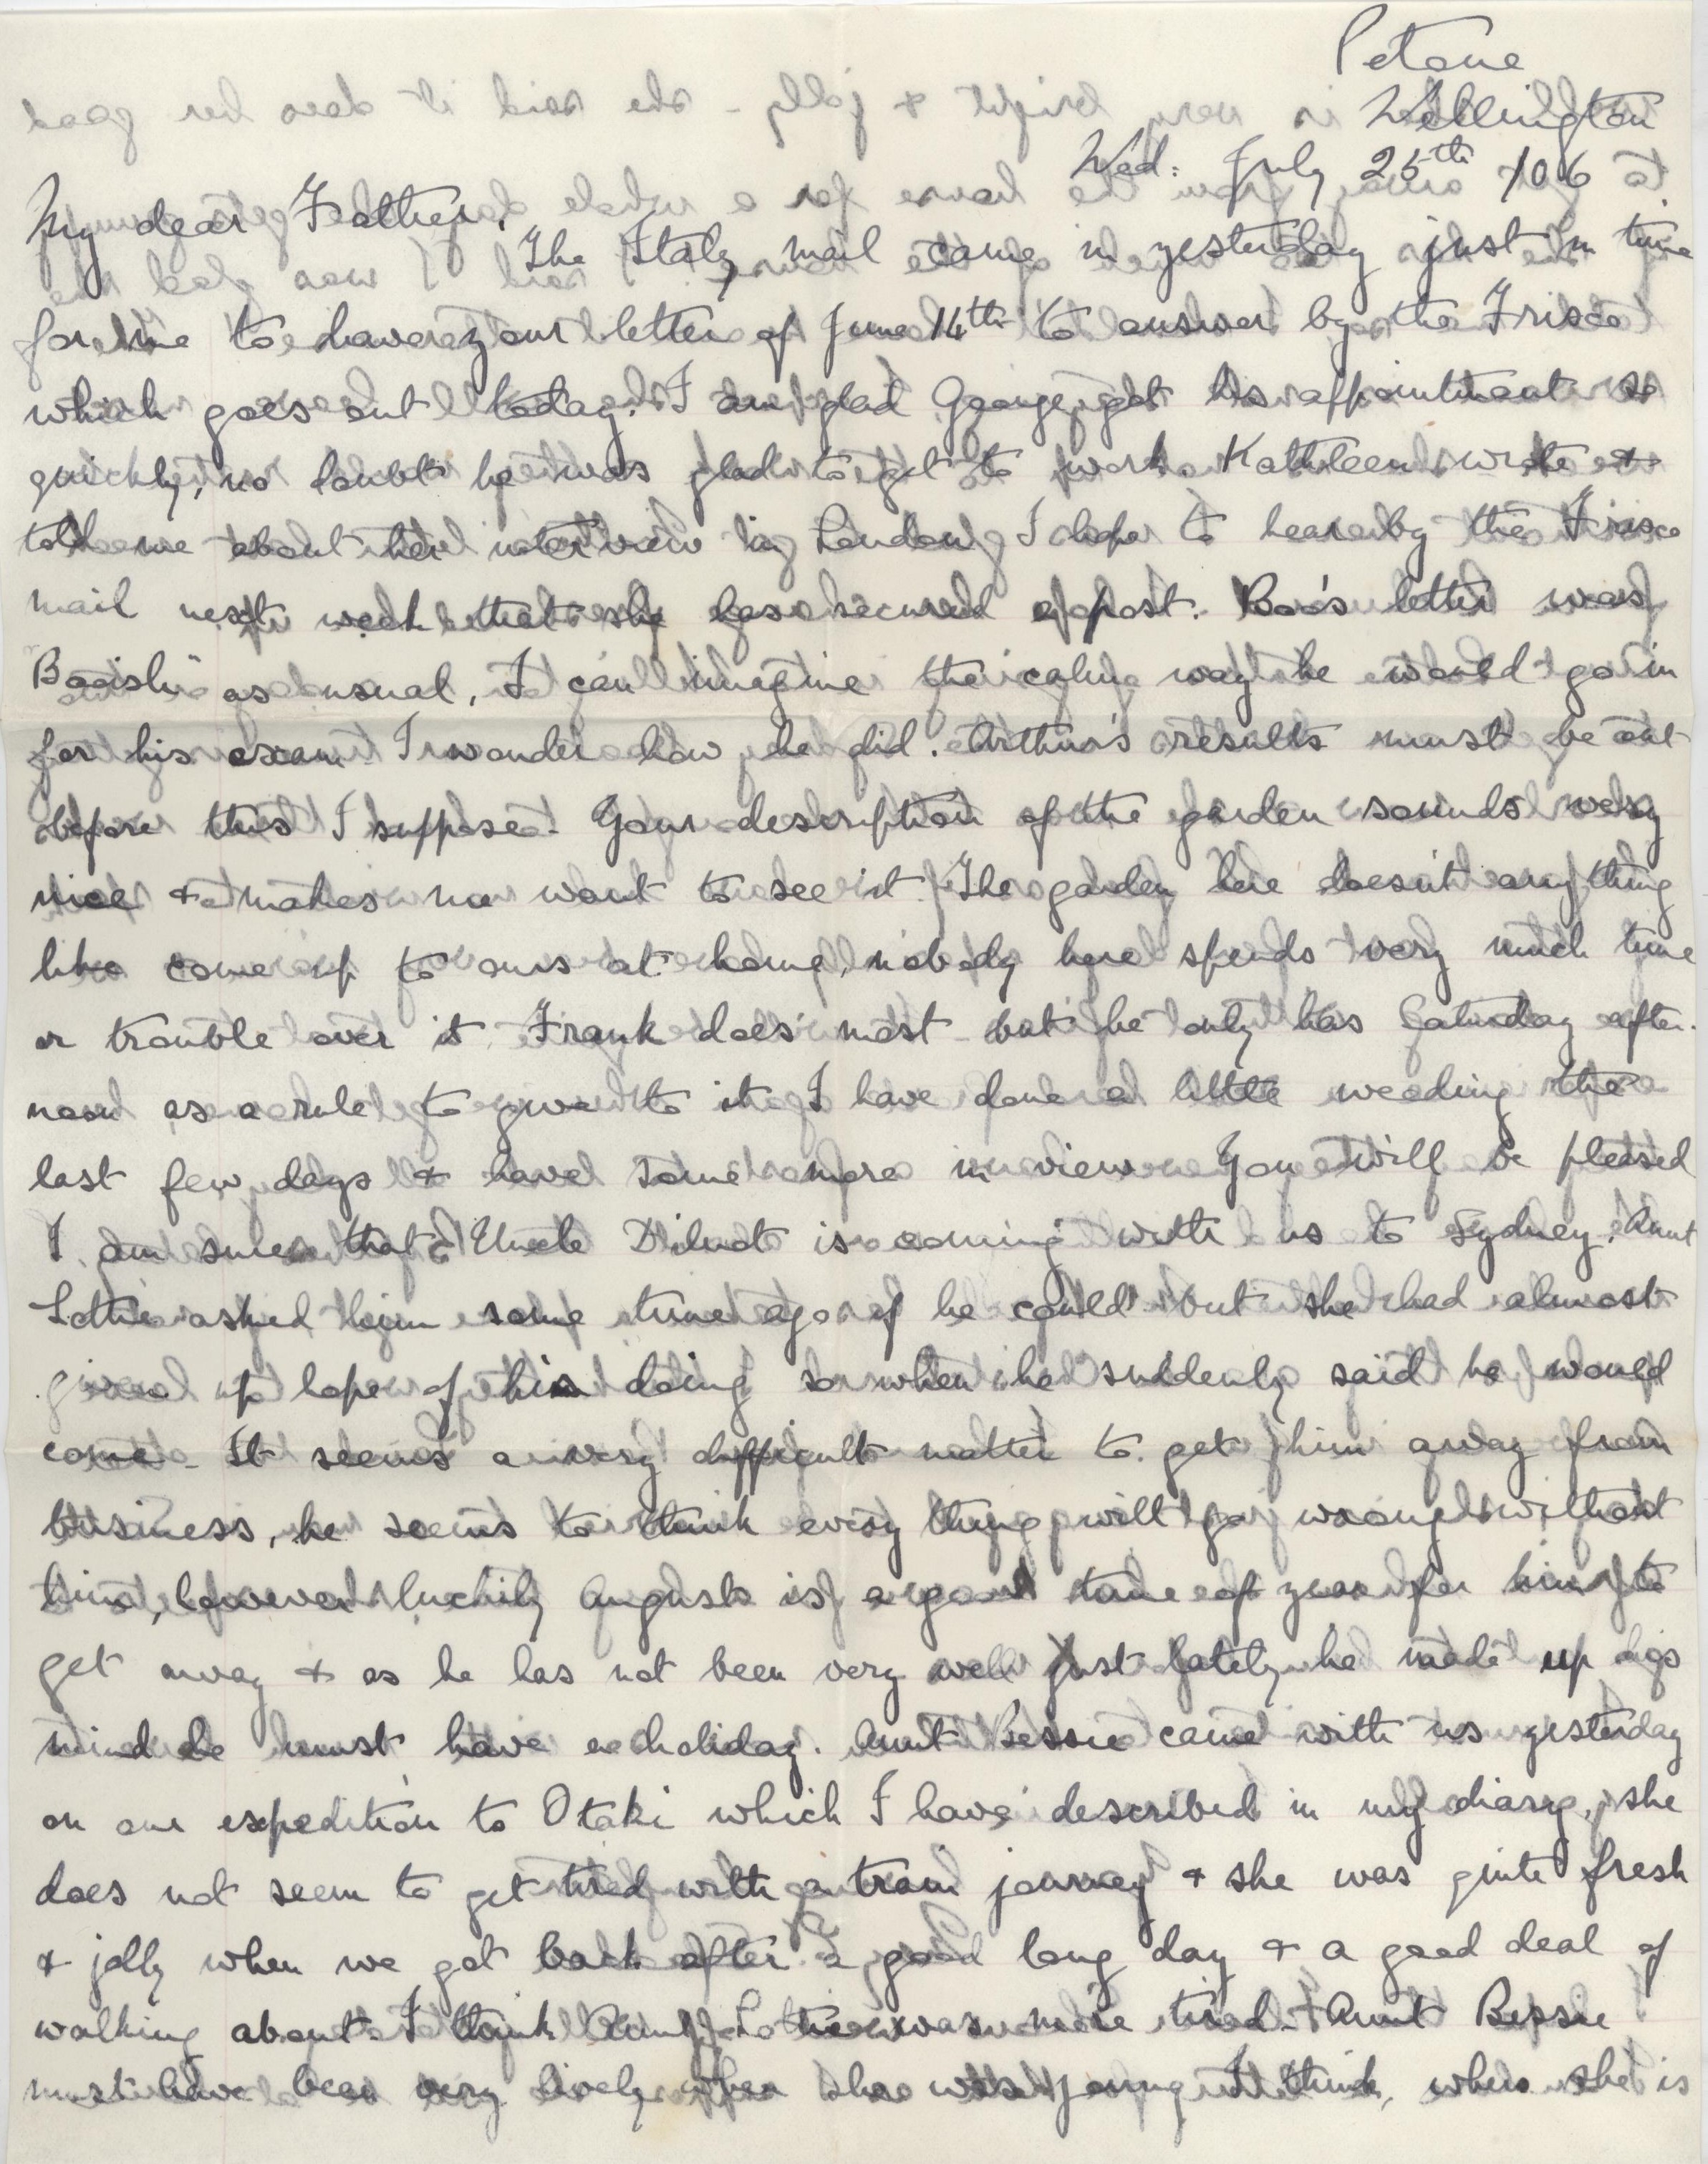 Petone
Wellington
Wed: July 25th /06
My dear Father,
The Italy mail came in yesterday just in time
for me to have your letter of June 14th to answer by the Frisco
which goes out today. I am glad George got his appointment so
quickly, no doubt he was glad to get to work. Kathleen wrote &
told me about her interview in London, I hope to hear by the Frisco
mail next week that she has secured a post. Boo's letter was
"Booish" as usual, I can imagine the calm way he would go in
for his exam. I wonder how he did. Arthur's results must be out
before this I suppose. Your description of the garden sounds very
nice & makes me want to see it. The garden here doesn't anything
like come up to ours at home, nobody here spends very much time
or trouble over it. Frank does most but he only has Saturday after-
noon as a rule to give to it. I have done a little weeding the
last few days & have some more in view. You will be pleased
I am sure that Uncle Dilnot is coming with us to Sydney. Aunt
Lottie asked him some time ago if he could but she had almost
given up hope of his doing so when he suddenly said he would
come. It seems a very difficult matter to get him away from
business, he seems to think every thing will go wrong without
him, however luckily August is a good time of year for him to
get away & as he has not been very well just lately he made up his
mind he must have a holiday. Aunt Bessie came with us yesterday
on our expedition to Otaki which I have described in my diary, she
does not seem to get tired with a train journey & she was quite fresh
& jolly when we got back after a good long day & a good deal of
walking about I think Aunt Lottie was more tired. Aunt Bessie
must have been very lively when she was young I think, when she is